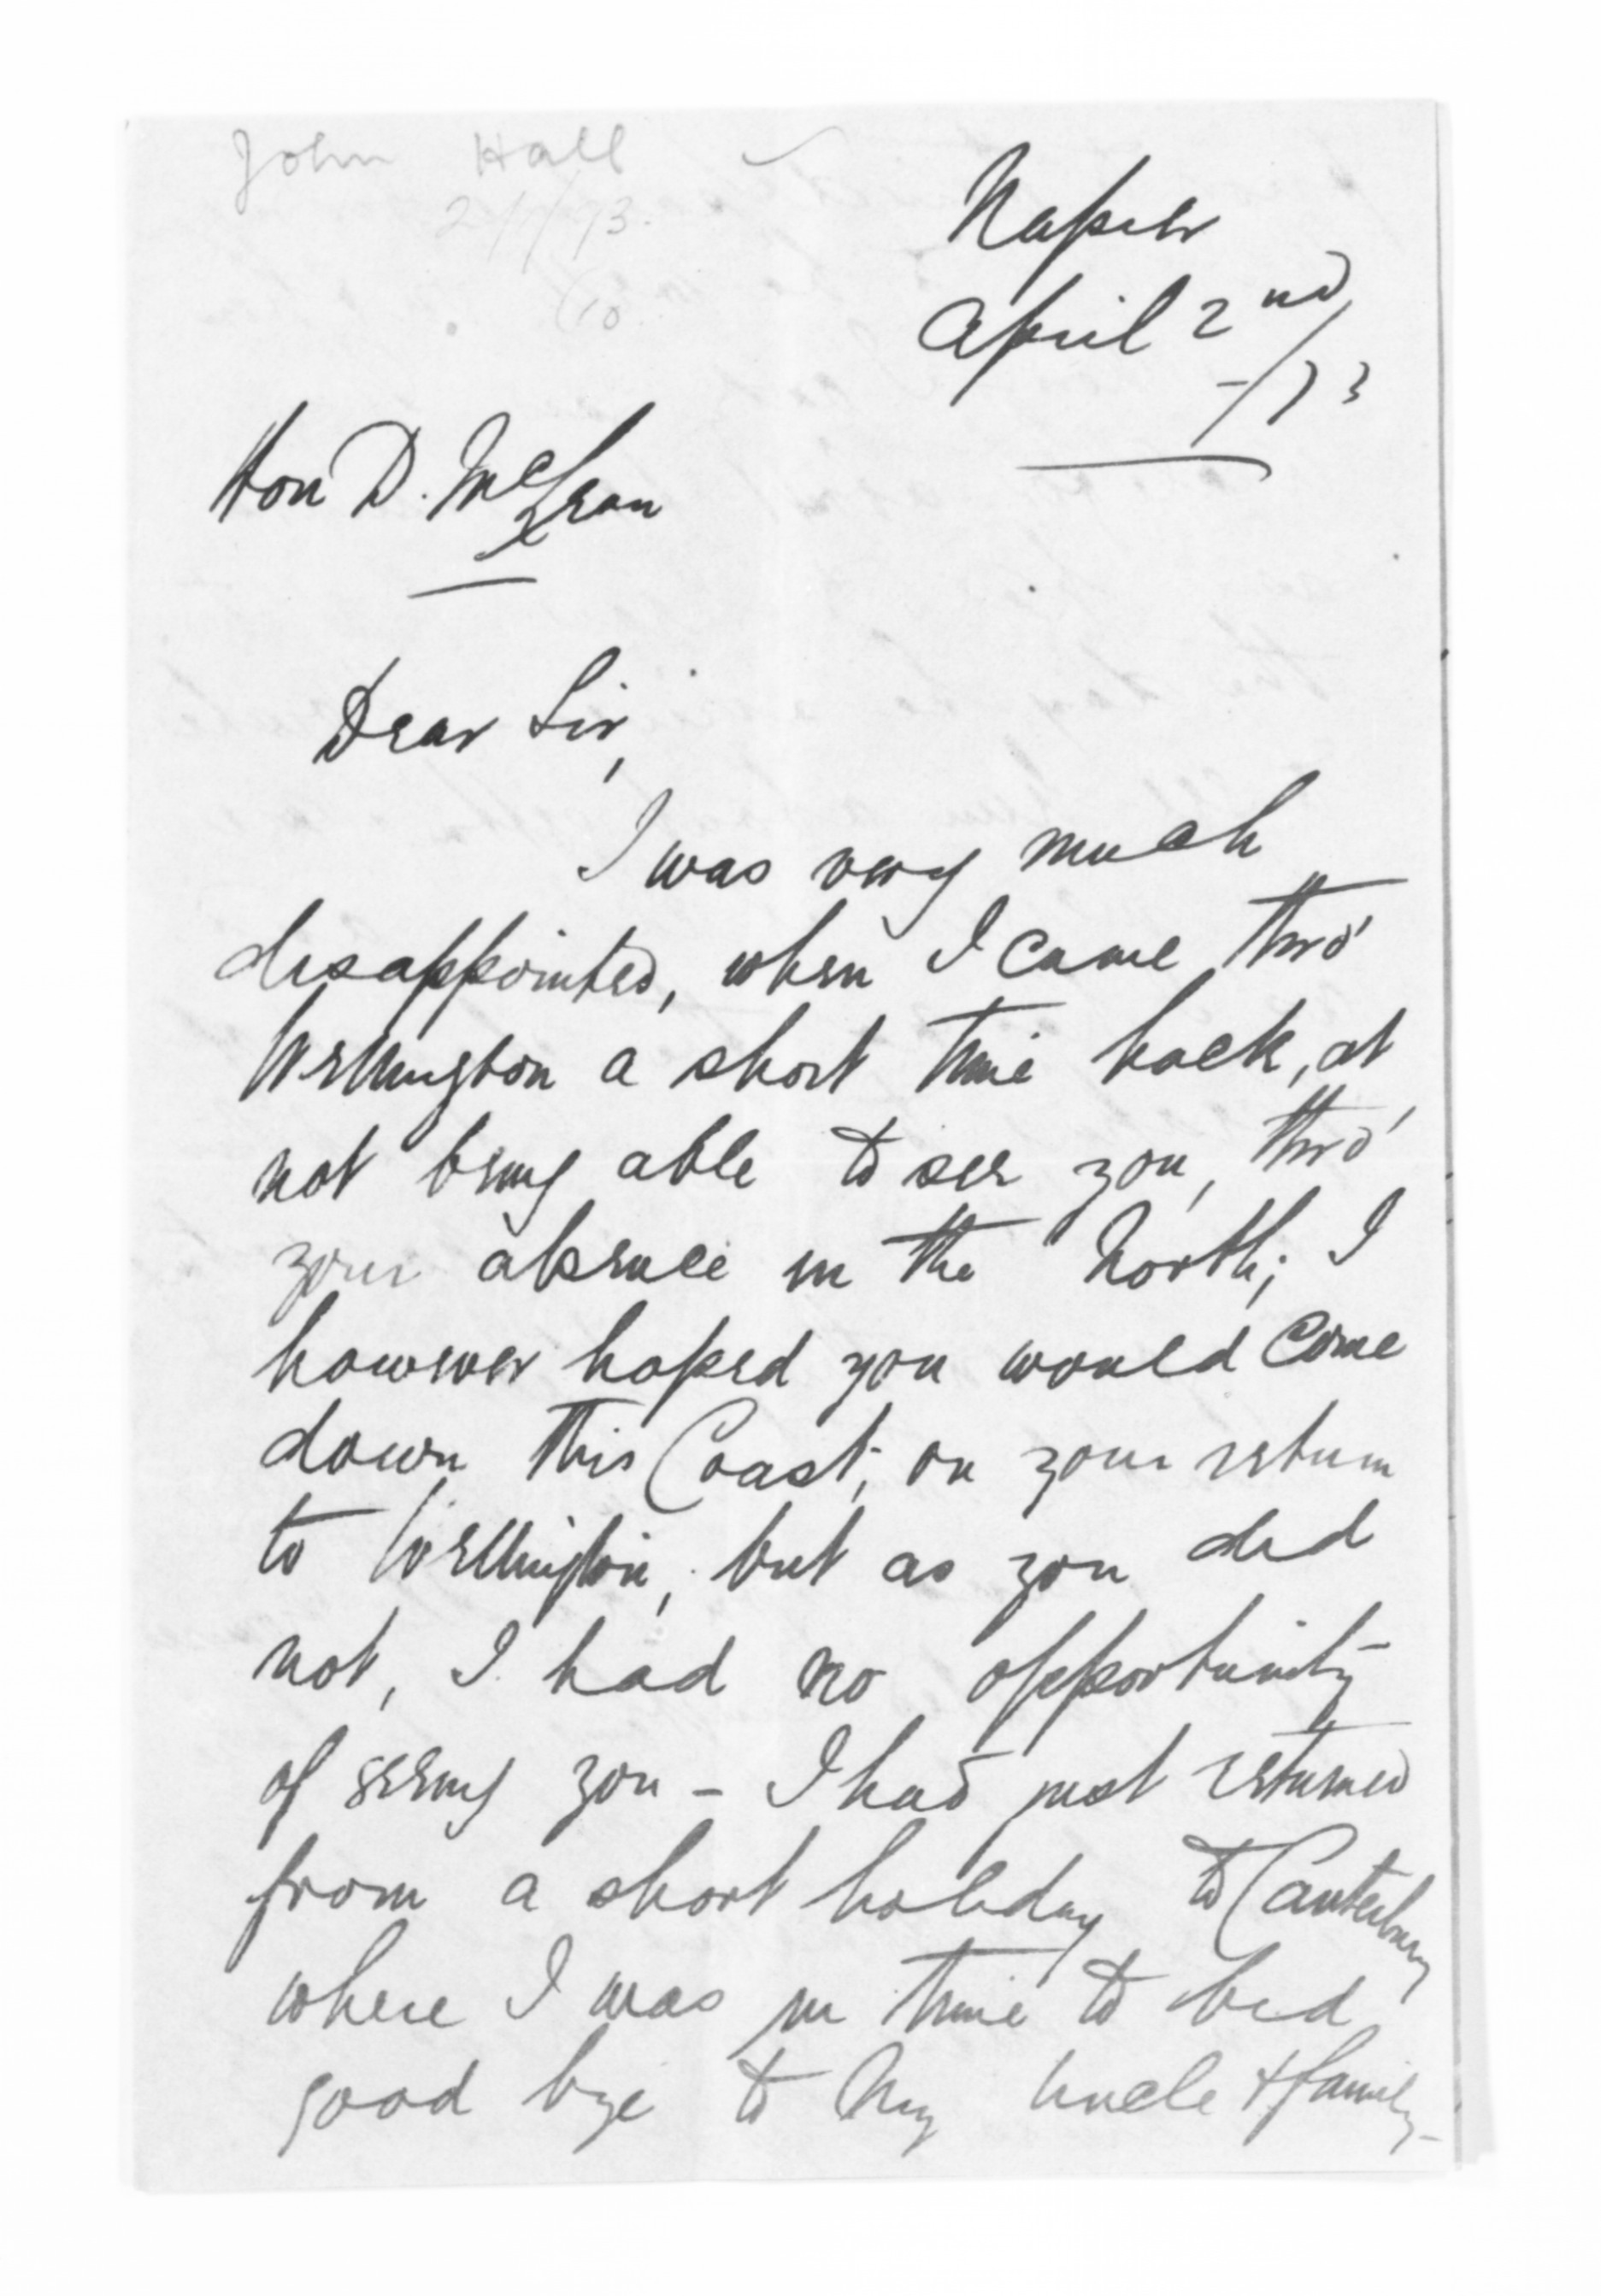 John Hall
2/4/73.
Napier
April 2nd
-/73
Hon D. McLean
Dear Sir,
I was very much
disappointed, when I came thro'
Wellington a short time back, at
not being able to see you, thro'
your absence in the North; I
however hoped you would come
down this Coast, on your return
to Wellington, but as you did
not, I had no opportunity
of seeing you - I had just returned
from a short holiday to Canterbury
where I was in time to bid
good bye to my Uncle & family -